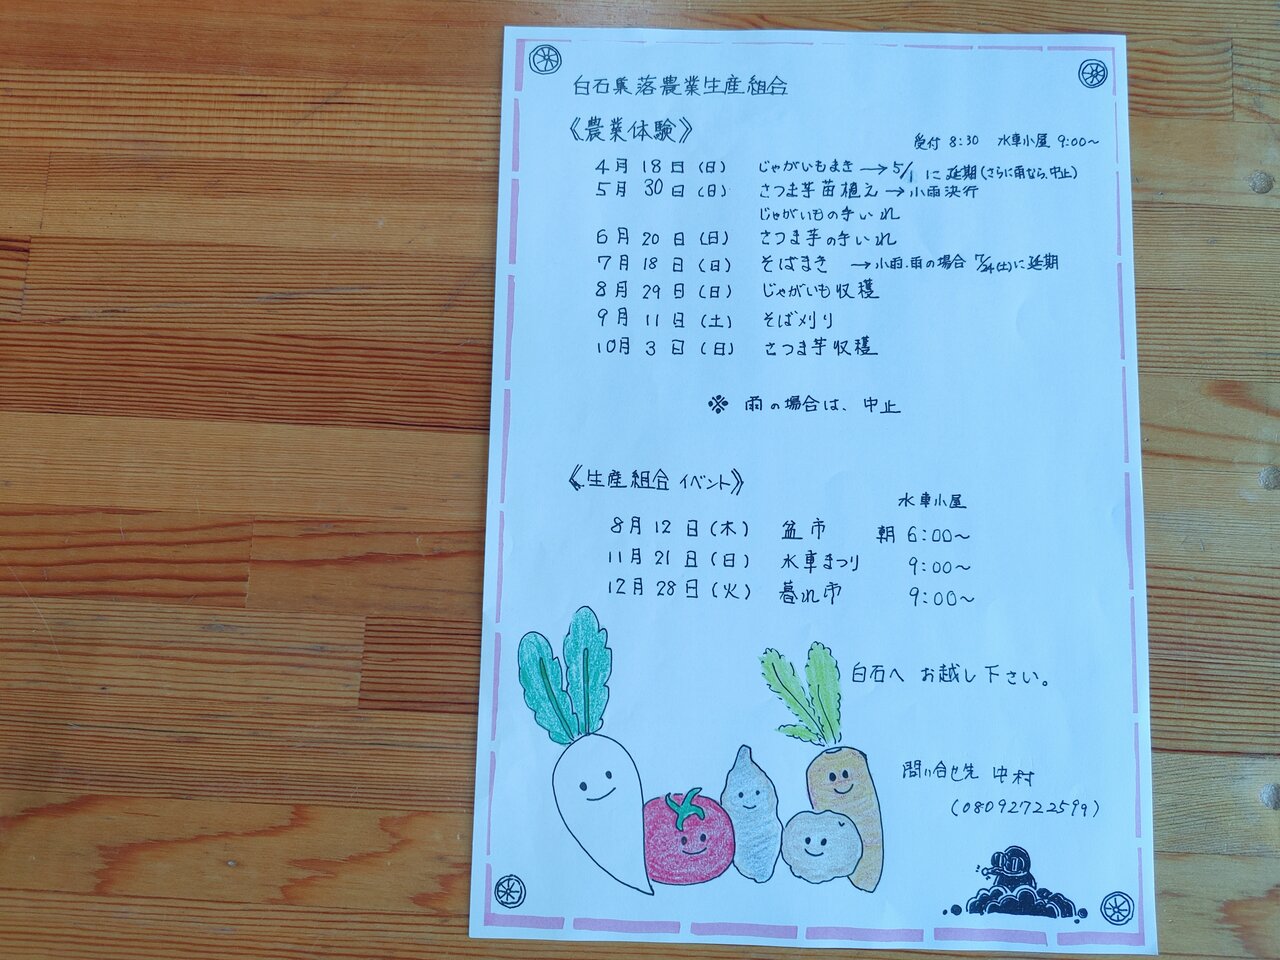 白石集落農業生産組合
《農業体験》
受付 8:30 水車小屋 9:00～
4月 18日(日) じゃがいもまき →5/1に延期(さらに雨なら、中止)
5月 30日(日) さつま芋苗植え →小雨決行
じゃがいもの手いれ
6月 20日(日) さつま芋の手いれ
7月 18日(日) そばまき →小雨.雨の場合 7/24(土)に延期
8月 29日(日) じゃがいも収穫
9月 11日(土) そば刈り
10月 3日(日) さつま芋収穫
※ 雨の場合は、中止
《生産組合イベント》
水車小屋
8月 12日(木) 盆市 朝 6:00～
11月 21日(日) 水車まつり 9:00～
12月 28日(火) 暮れ市 9:00～
白石へ お越し下さい。
問い合せ先 中村
(08092722599)